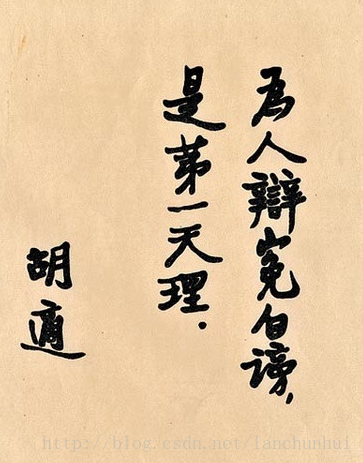 為人辯冤白謗，
是第一天理．
胡適
http://blog.csdn.net/lanchunhui